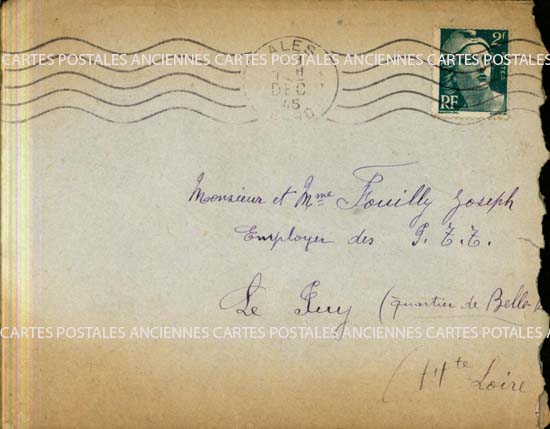 ALES
H
DEC
45
GARD
2F
POSTES
RF
CARTES POSTALES ANCIENNES CARTES POSTALES ANCIENNES CARTES POTALES ANCIENNES
Monsieur et Mme Fouilly Joseph
Employer des P. T. T.
Le Puy (quartier de Belle-
CARTES POSTALES ANCIENNES CARTES POSTALES ANCIENNES CARTES POTALES ANCIENNES
(Hte Loire